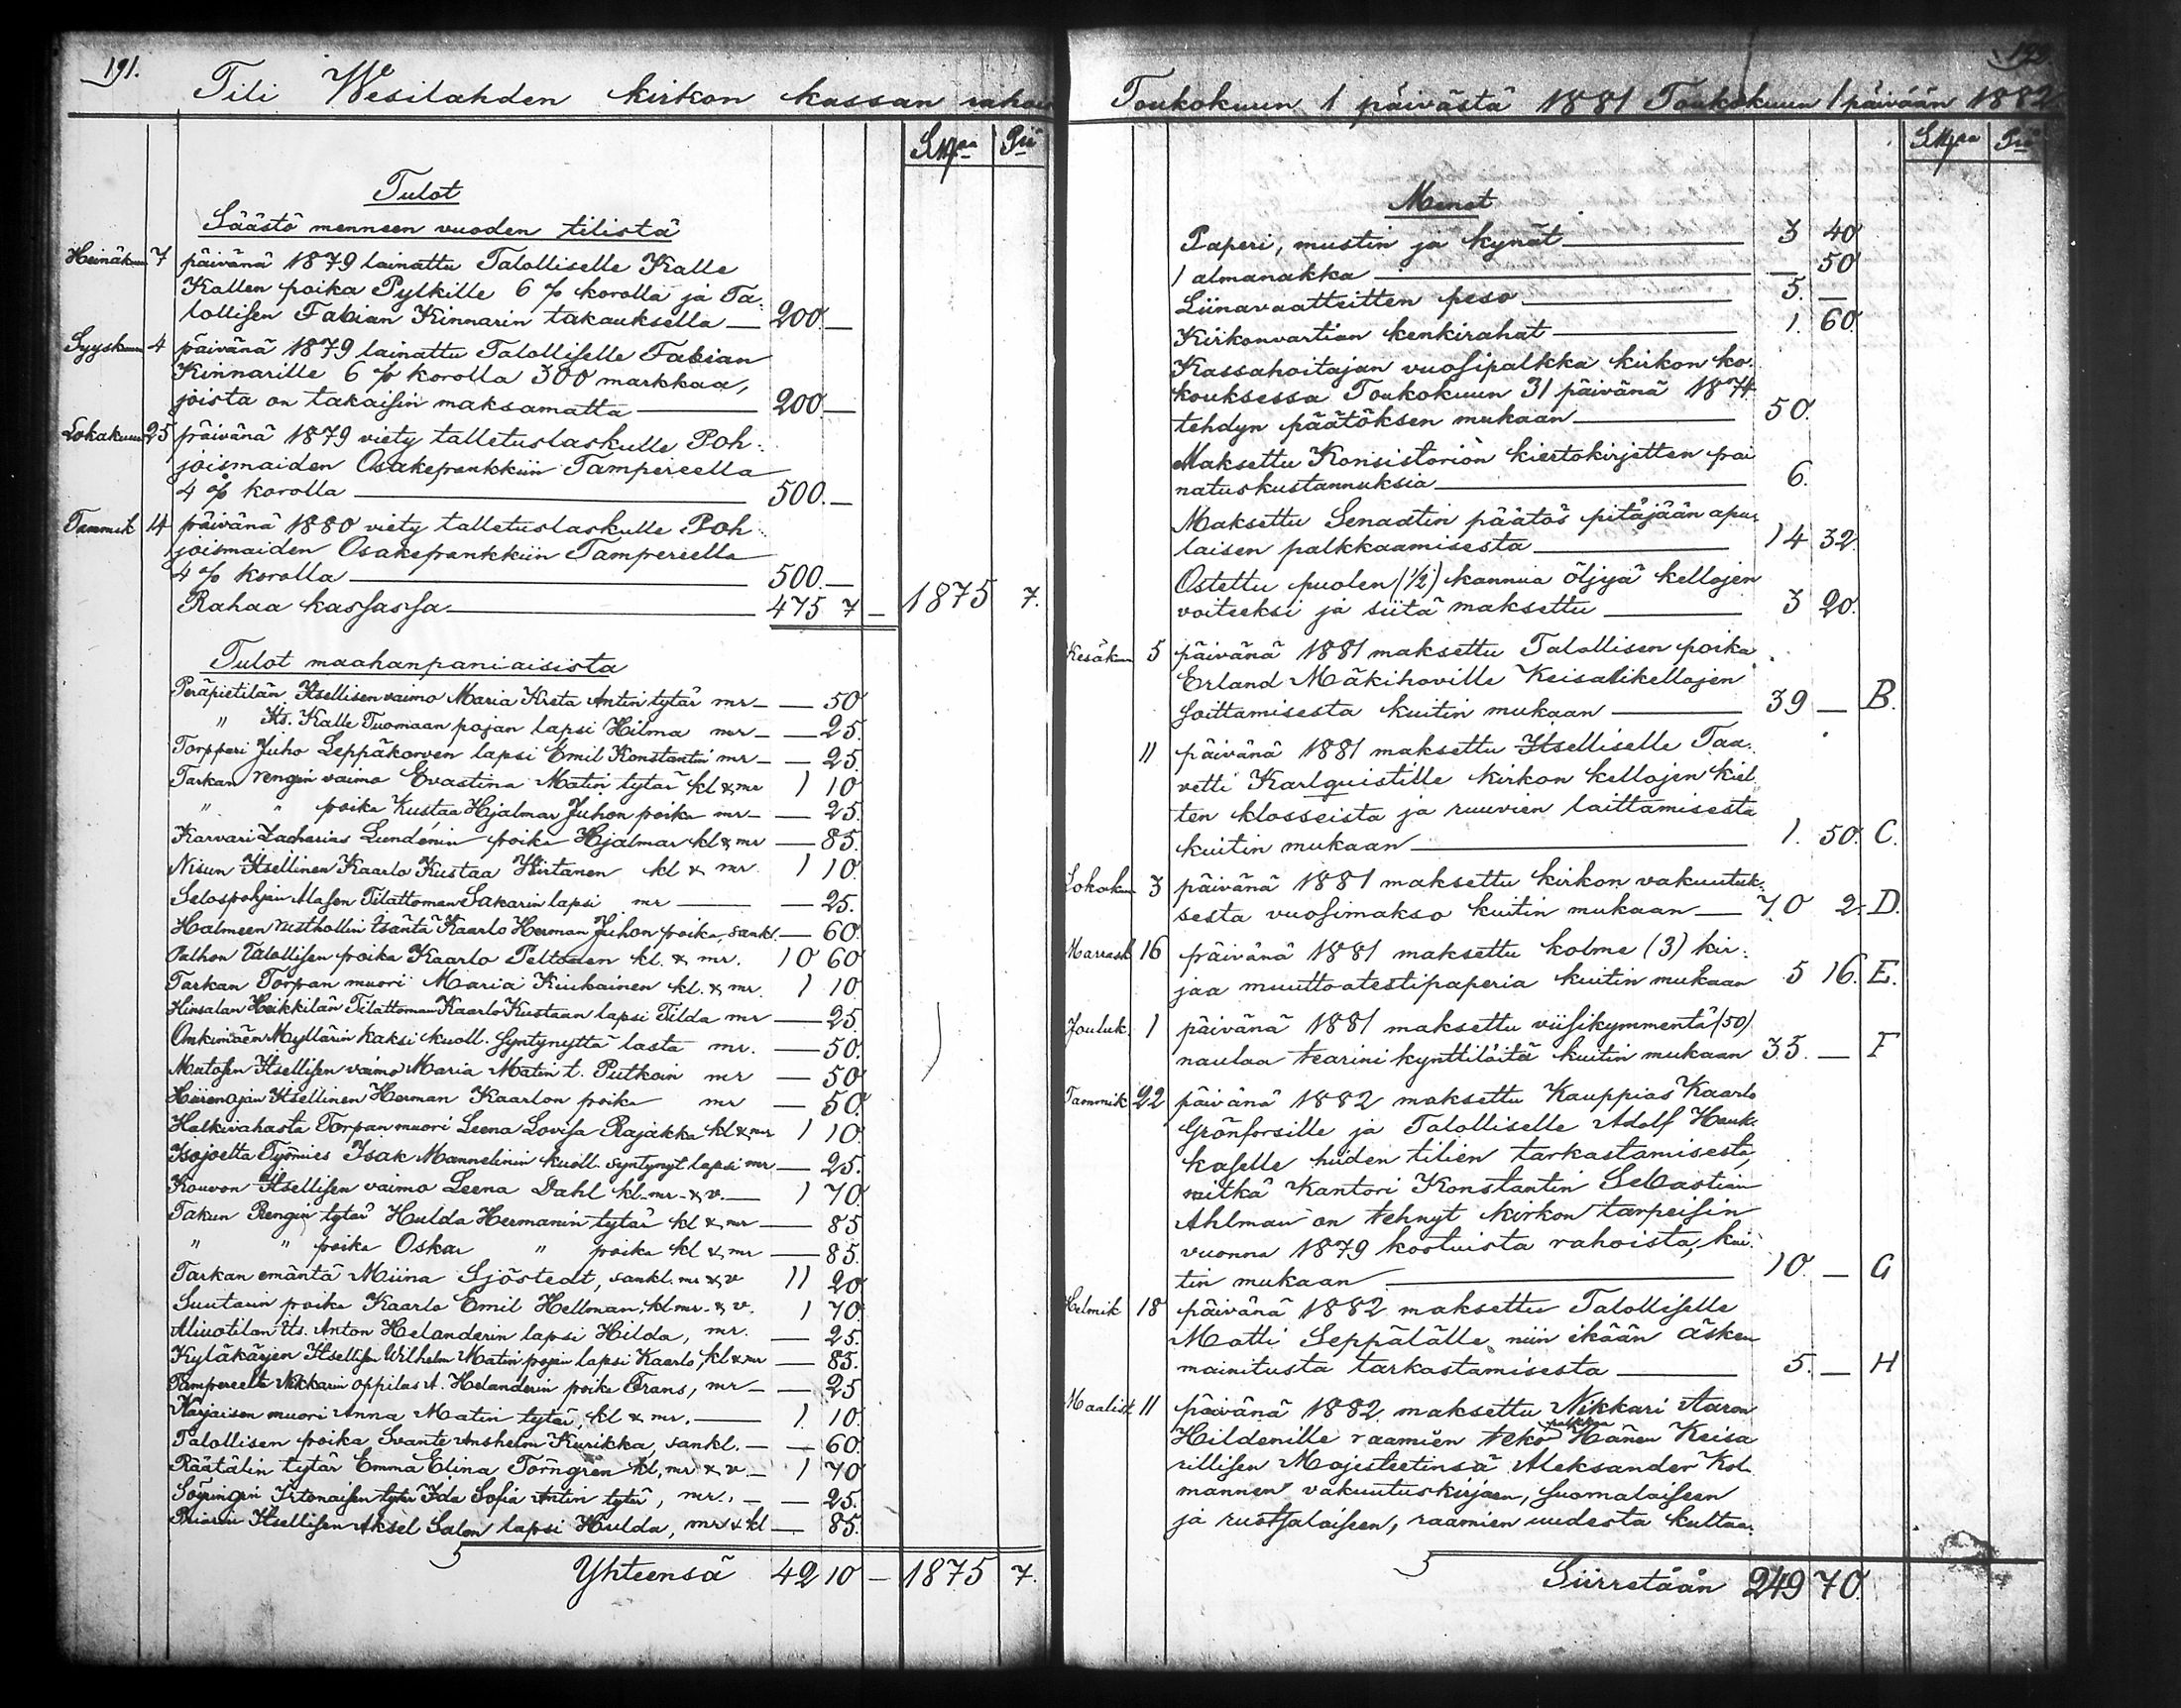 191.
Tili Wesilahden kirkon kassan rahois
Smpaa Pii
Tulot
Säästö menneen vuoden tilistä
Heinäkuun 7 päivänä 1879 lainattu Talolliselle Kalle
Kallen poika Pylkille 6 % korolla ja Ta-
lollisen Fabian Kinnarin takauksella — 200. —
Syyskuun 4 päivänä 1879 lainattu Talolliselle Fabian
Kinnarille 6 % korolla 300 markkaa,
joista on takaisin maksamatta — 200. —
Lokakuun 25 päivänä 1879 viety talletuslaskulle Poh-
joismaiden Osakepankkiin Tampereella
4 % korolla — 500. —
Tammik 14 päivänä 1880 viety talletuslaskulle Poh-
joismaiden Osakepankkiin Tampereella
4 % korolla — 500. —
Rahaa kassassa — 475 7 — 1875 7.
Tulot maahanpaniaisista
Peräpietilän Itsellisen vaimo Maria Kreta Antin tytär mr — — 50
" Its. Kalle Tuomaan pojan lapsi Hilma mr — — 25.
Torppari Juho Leppäkorven lapsi Emil Konstantin mr — — 25.
Tarkan rengin vaimo Evastina Matin tytär kl & mr 1 10
" " poika Kustaa Hjalmar Juhon poika mr — — 25.
Karvari Zacharias Lundenin poika Hjalmar kl & mr — 85.
Nisun Itsellinen Kaarlo Kustaa Hirtanen kl & mr 1 10.
Selospohjan Masen Tilattoman Sakarin lapsi mr — — 25.
Halmeen rusthollin isäntä Kaarlo Herman Juhon poika, sankl. — 60.
Palhon Talollisen poika Kaarlo Peltonen kl. & mr. 10 60
Tarkan Torpan muori Maria Kiukainen kl. & mr. 1 10
Hinsalan Heikkilän Tilattoman Kaarlo Kustaan lapsi Tilda mr — 25.
Onkimäen Myllärin kaksi kuoll. syntynyttä lasta mr. — 50.
Mutosen Itsellisen vaimo Maria Matin t. Putkoin mr — 50
Hiirenojan Itsellinen Herman Kaarlon poika mr — 50.
Halkivahasta Torpan muori Leena Lovisa Rajakka kl & mr 1 10.
Isojoelta Työmies Isak Mannelinin kuoll. syntynyt lapsi mr — 25.
Kouvon Itsellisen vaimo Leena Dahl kl-mr-&v. — 1 70.
Takun Rengin tytär Hulda Hermanin tytär kl & mr — 85
" " poika Oskar " poika kl & mr — 85.
Tarkan emäntä Miina Sjöstedt, sankl. mr & v 11 20
Suutarin poika Kaarlo Emil Hellman, kl mr. & v. 1 70.
Alivotilan Its. Anton Helanderin lapsi Hilda, mr. — 25.
Kyläkärjen Itsellisen Wilhelm Matin pojan lapsi Kaarlo, kl & mr — 85.
Tampereelta Nikkarin oppilas A. Helanderin poika Frans, mr — — 25
Karjaisen muori Anna Matin tytär, kl & mr. — 1. 10.
Talollisen poika Svante Anshelm Kurikka, sankl. — — 60.
Räätälin tytär Emma Elina Törngren kl, mr & v — 1 70
Irtonaisen tytär Ida Sofia Antin tytär, mr., — — 25.
Itsellisen Aksel Salon lapsi Hulda, mr & kl — 85.
Yhteensä 42 10 — 1875 7.
192.
Toukokuun 1 päivästä 1881 Toukokuun 1 päivään 1882
Smpaa Pii
Menot
Paperi, mustin ja kynät — 3 40
1 almanakka — — 50
Liinavaatteitten peso — 5. —
Kirkonvartian kenkirahat — 1. 60.
Kassahoitajan vuosipalkka kirkon ko-
kouksessa Toukokuun 31 päivänä 1874
tehdyn päätöksen mukaan — 50.
Maksettu Konsistorion kiertokirjetten pai
natuskustannuksia — 6.
Maksettu Senaatin päätös pitäjään apu-
laisen palkkaamisesta — 14 32.
Ostettu puolen (1/2) kannua öljyä kellojen
voiteeksi ja siitä maksettu — 3 20.
Kesäkuun 5 päivänä 1881 maksettu Talollisen poika
Erland Mäkihoville Keisarikellojen
soittamisesta kuitin mukaan — 39 — B.
11 päivänä 1881 maksettu Itselliselle Taa-
vetti Karlquistille kirkon kellojen kiel
ten klosseista ja ruuvien laittamisesta
kuitin mukaan — 1. 50. C.
Lokakuun 3 päivänä 1881 maksettu kirkon vakuutuk-
sesta vuosimakso kuitin mukaan — 70 2. D.
Marrask 16 päivänä 1881 maksettu kolme (3) kir-
jaa muuttoatestipaperia kuitin mukaan 5 16. E.
Jouluk. 1 päivänä 1881 maksettu viisikymmentä (50)
naulaa tearini kynttilöitä kuitin mukaan 35. — F
Tammik 22 päivänä 1882 maksettu Kauppias Kaarlo
Grönforsille ja Talolliselle Adolf Hauk-
kaselle niiden tilien tarkastamisesta,
mitkä Kantori Konstantin Sebastian
Ahlman on tehnyt kirkon tarpeisin
vuonna 1879 kootuista rahoista, kui-
tin mukaan — 10. — G
Helmik 18 päivänä 1882 maksettu Talolliselle
Matti Seppälälle niin ikään äsken
mainitusta tarkastamisesta — 5. — H
Maalisk 11 päivänä 1882 maksettu Nikkari Aaron
Hildenille raamien teko palkkaa Hänen Keisa
rillisen Majesteetinsa Aleksander Kol
mannen vakuutuskirjaan, suomalaiseen
ja ruotsalaiseen, raamien uudesta kultaa-
Siirretään 249 70.